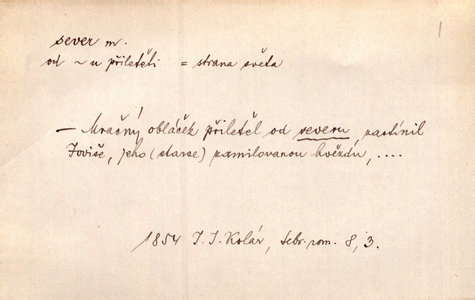 1
sever m.
od ~u přiletěti = strana světa
– Mračný obláček přiletěl od severu, zastínil
Joviše, jeho (starse) zamilovanou hvězdu, ....
1854 J. J. Kolár, sebr. rom. 8, 3.